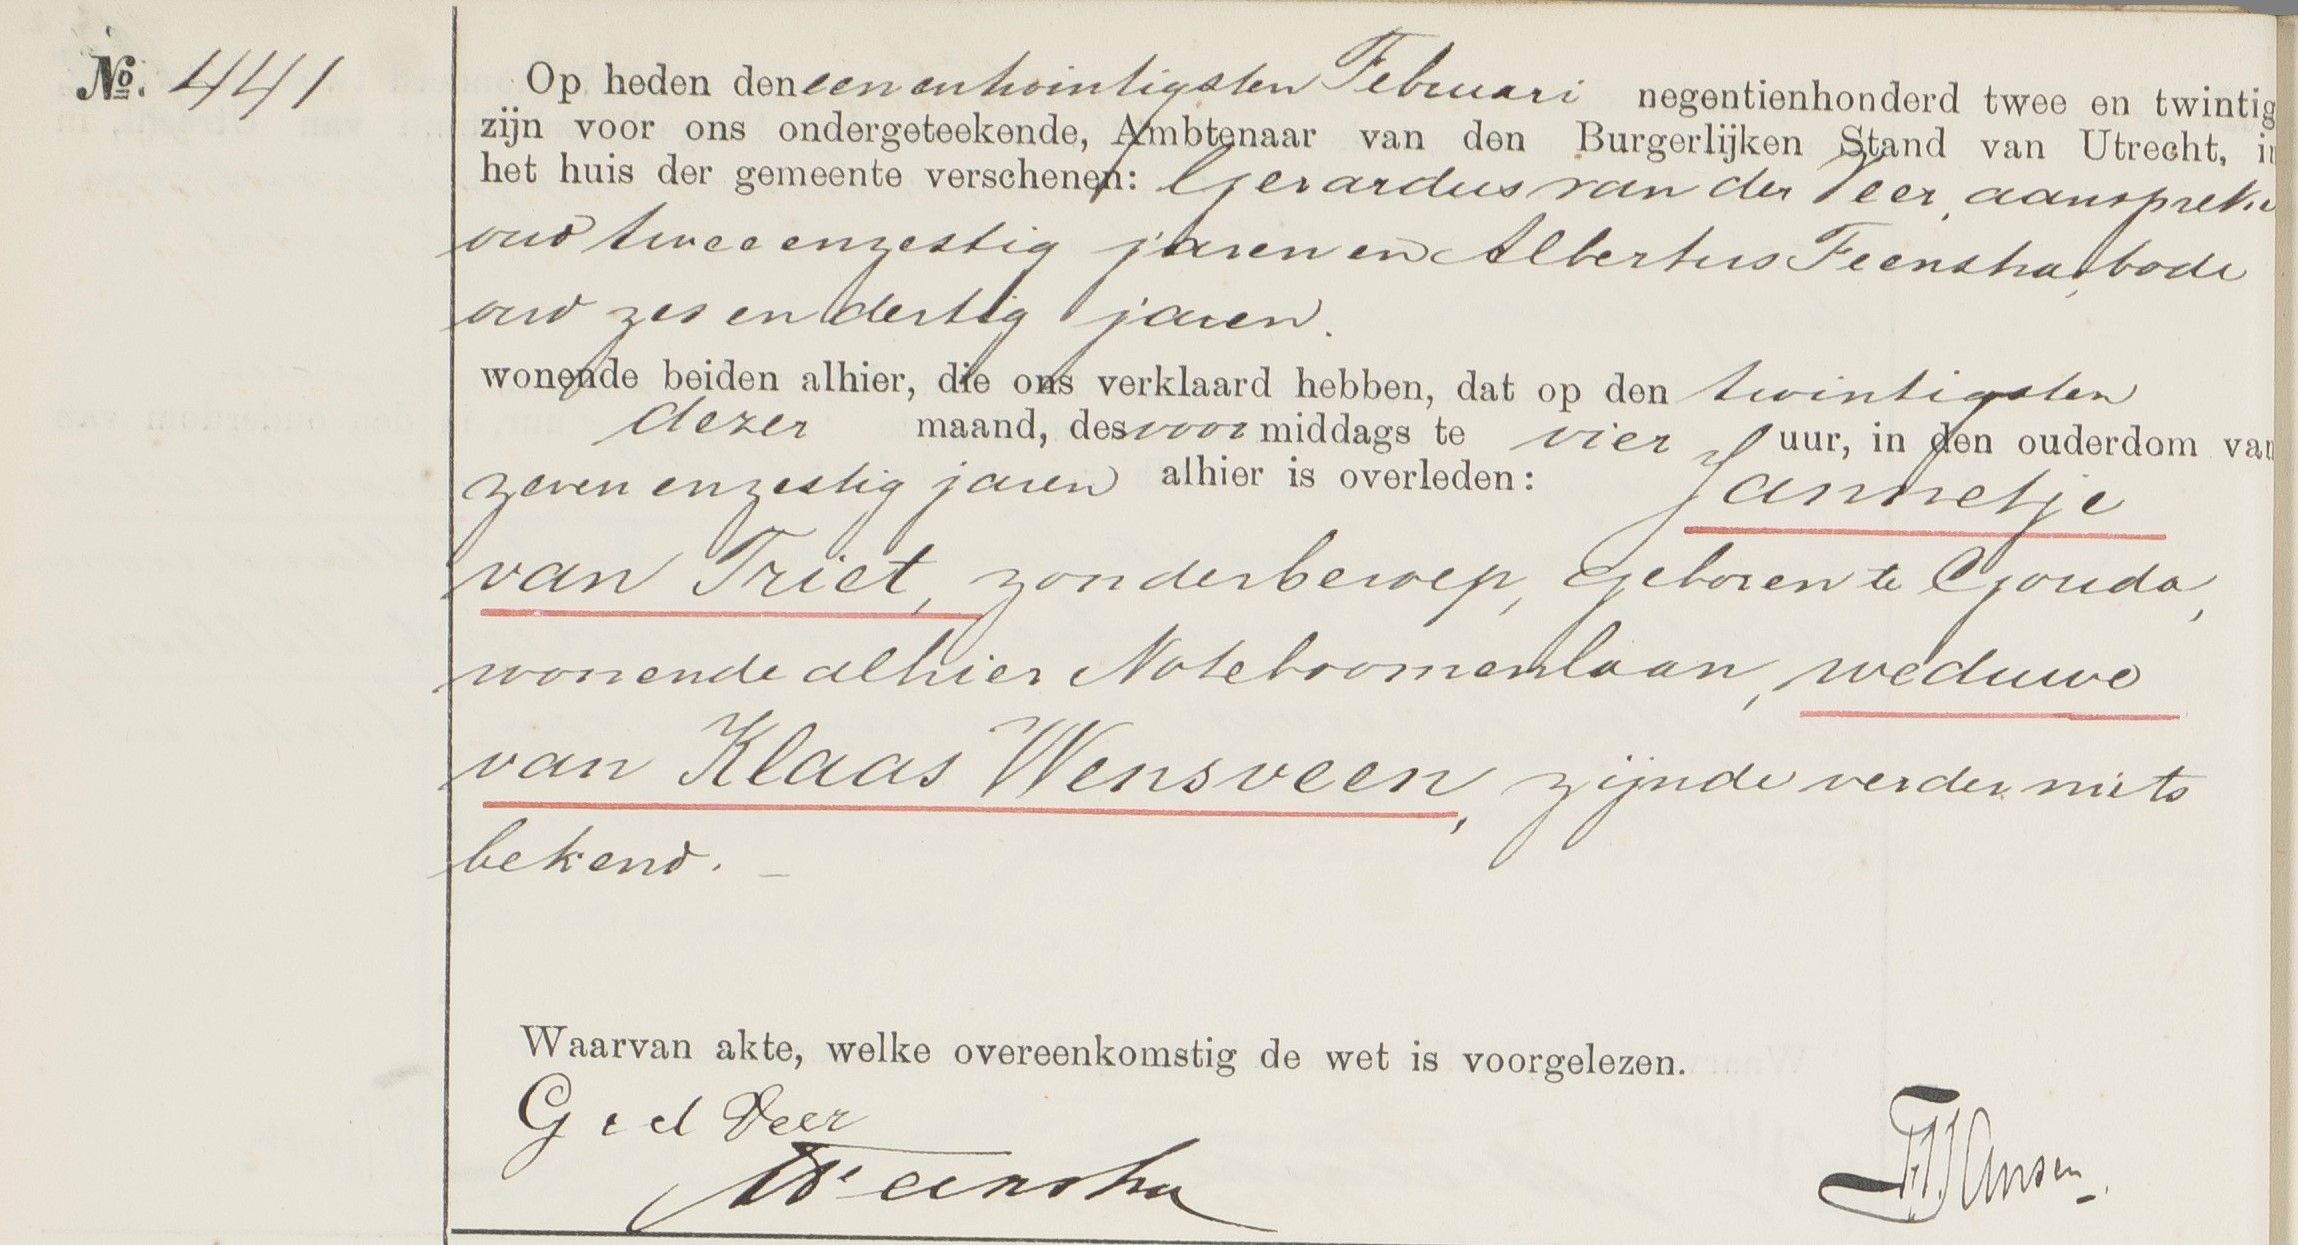 No. 441
Op heden den eenentwintigsten Februari negentienhonderd twee en twintig
zijn voor ons ondergeteekende, Ambtenaar van den Burgerlijken Stand van Utrecht, in
het huis der gemeente verschenen: Gerardus van der Veer, aanspreker
oud tweeenzestig jaren en Albertus Feenstra, bode
oud zes en dertig jaren.
wonende beiden alhier, die ons verklaard hebben, dat op den twintigsten
dezer maand, des voormiddags te vier uur, in den ouderdom van
zeven en zestig jaren alhier is overleden: Jannetje
van Triet, zonder beroep, geboren te Gouda,
wonende alhier Noteboomenlaan, weduwe
van Klaas Wensveen, zijnde verder niets
bekend. –
Waarvan akte, welke overeenkomstig de wet is voorgelezen.
G v d Veer
Feenstra
Jansen